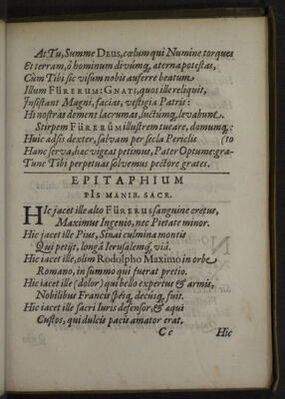 At Tu, Summe DEUS, cœlum qui Numine torques
Et terram, ô hominum divûmq; æterna potestas,
Cùm Tibi sic visum nobis auferre beatum
Illum FÜRERUM: GNATI, quos ille reliquit,
Insistant Magni, facias, vestigia Patris:
Hi nostras demens lacrumas, luctumq; levabunt.
Stirpem FÜRERÛM illustrem tueare, domumq;:
Huic adsis dexter, salvam per secla Periclis
Hanc serva, hac vigeat petimus, Pater Optume: gra-(to
Tunc Tibi perpetuas solvemus pectore grates.
EPITAPHIUM
PIS MANIB. SACR.
HIc jacet ille alto FÜRERUM sanguine cretus,
Maximus Ingenio, nec Pietate minor.
Hic iacet ille Pius, Sinai culmina montis
Qui petijt, longâ Ierusalemq; viâ.
Hic iacet ille, olim Rodolpho Maximo in orbe
Romano, in summo qui fuerat pretio.
Hic iacet ille (dolor) qui bello expertus & armis,
Nobilibus Francis spésq; decúsq; fuit.
Hic iacet ille sacri Iuris defensor, & æqui
Custos, qui dulcis pacis amator erat.
Cc
Hic